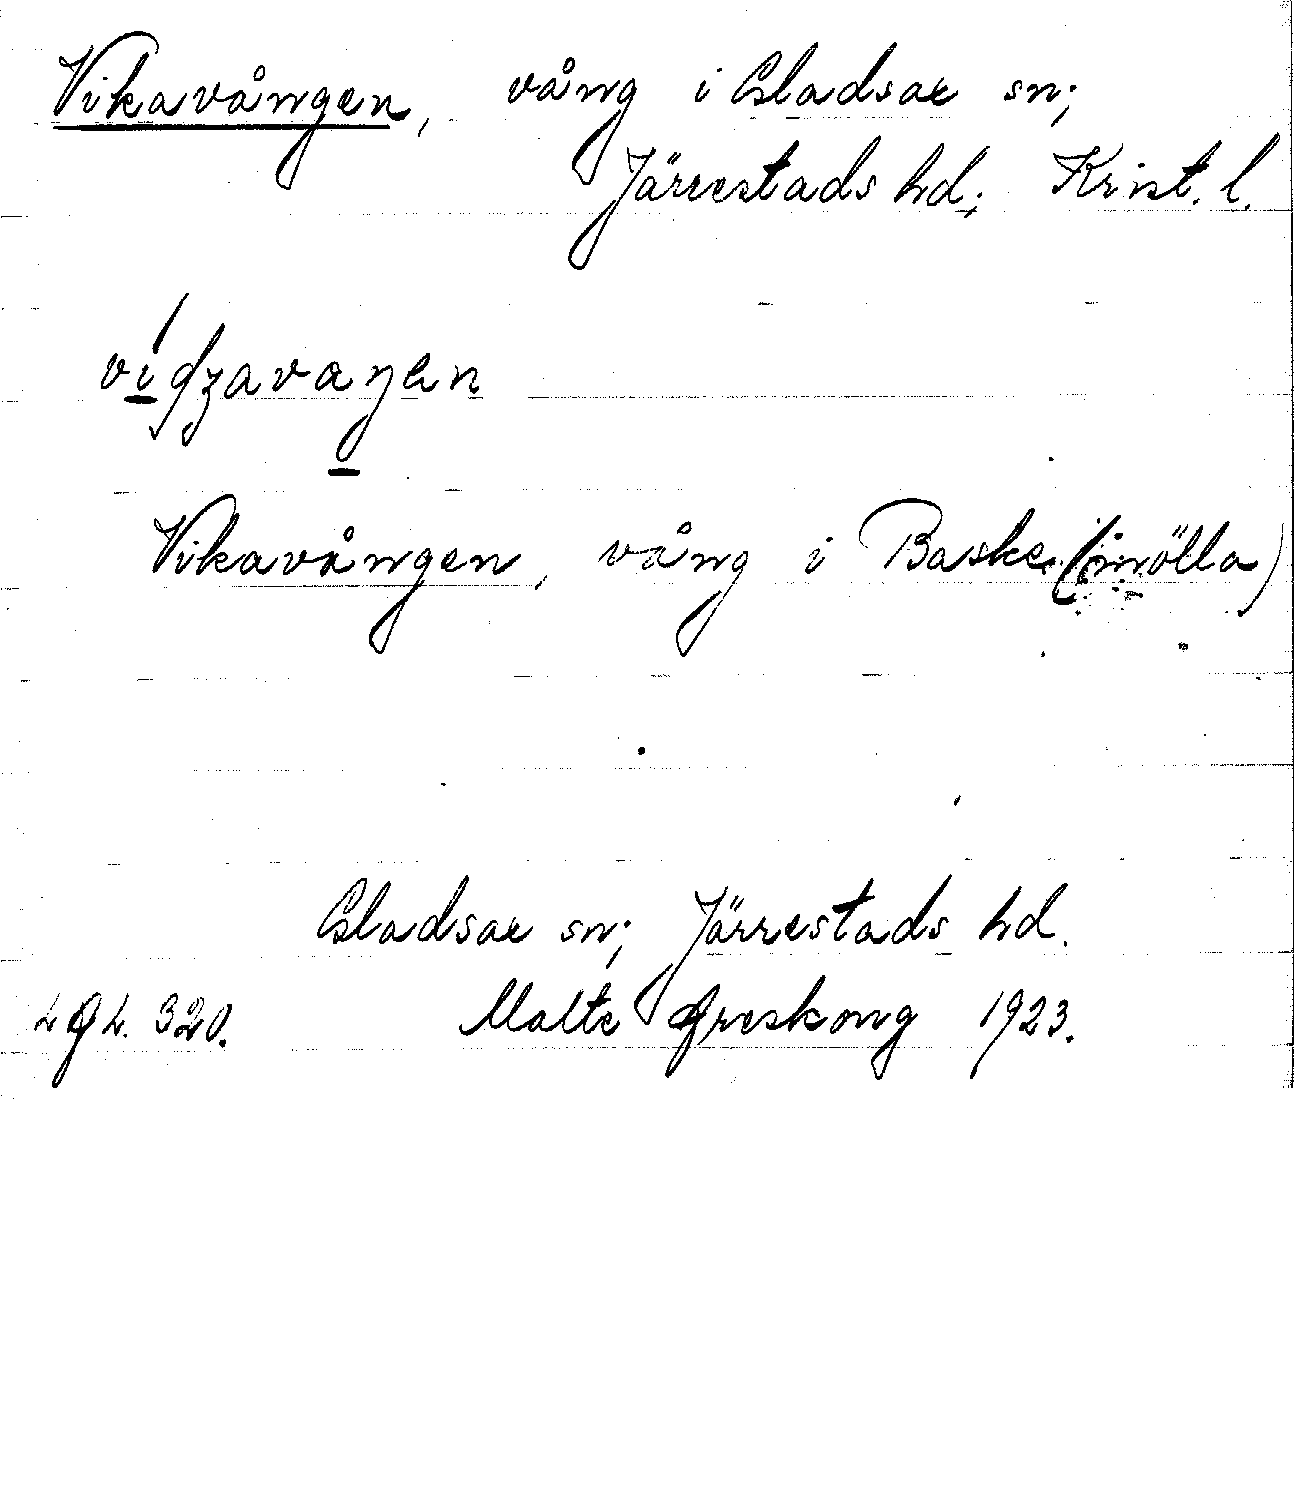 Vikavången, vång i Gladsax sn;
Järrestads hd; Krist. l.
Vikavången, vång i Baske(mölla)
Gladsax sn; Järrestads hd.
320. Malte Areskoug 1923.